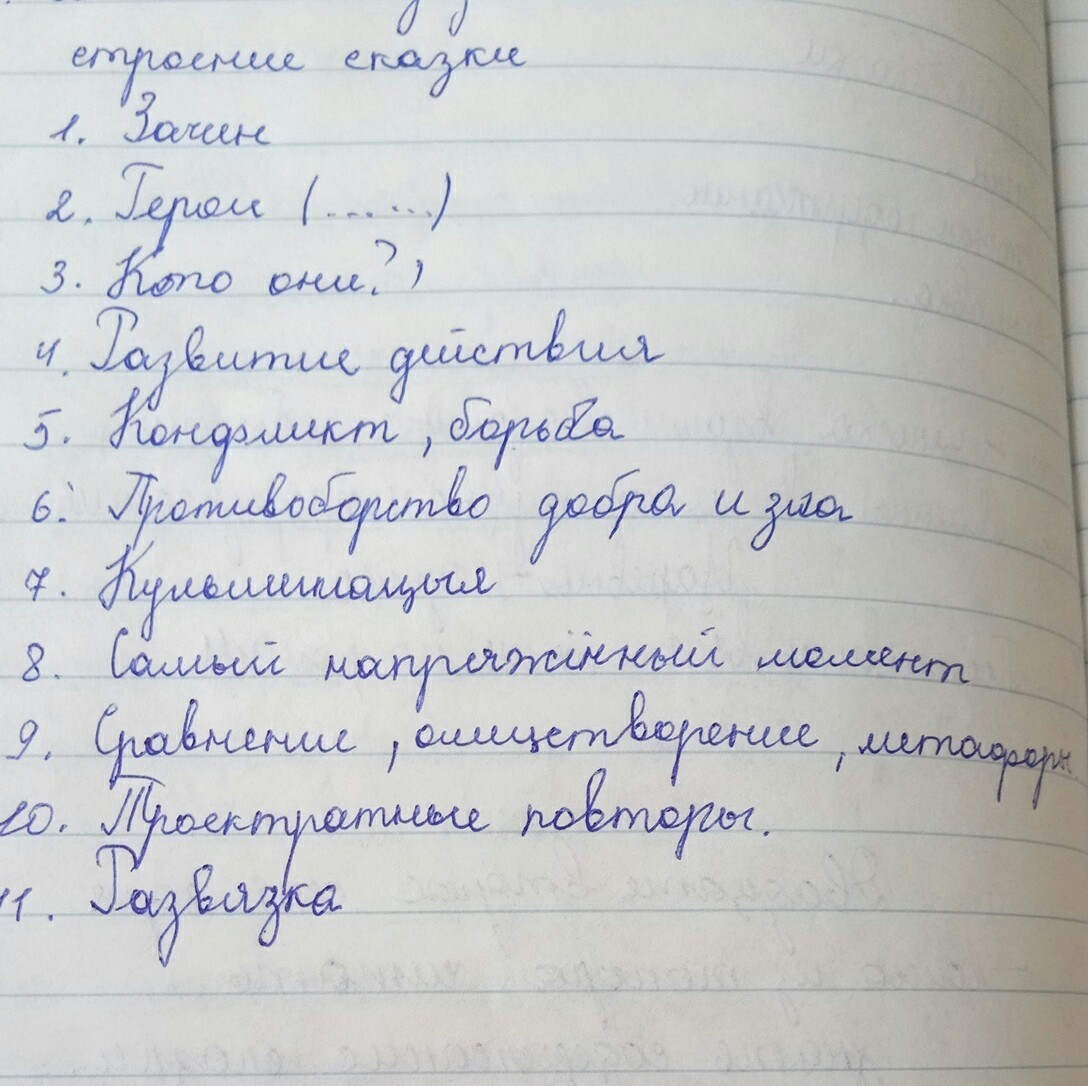 строение сказки
1. Зачин
2. Герои (......)
3. Кто они?,
4. Развитие действия
5. Конфликт, борьба
6. Противоборство добра и зла
7. Кульминацыя
8. Самый напряжённый момент
9. Сравнение, олицетворение, метафоры
10. Троектратные повторы.
11. Развязка